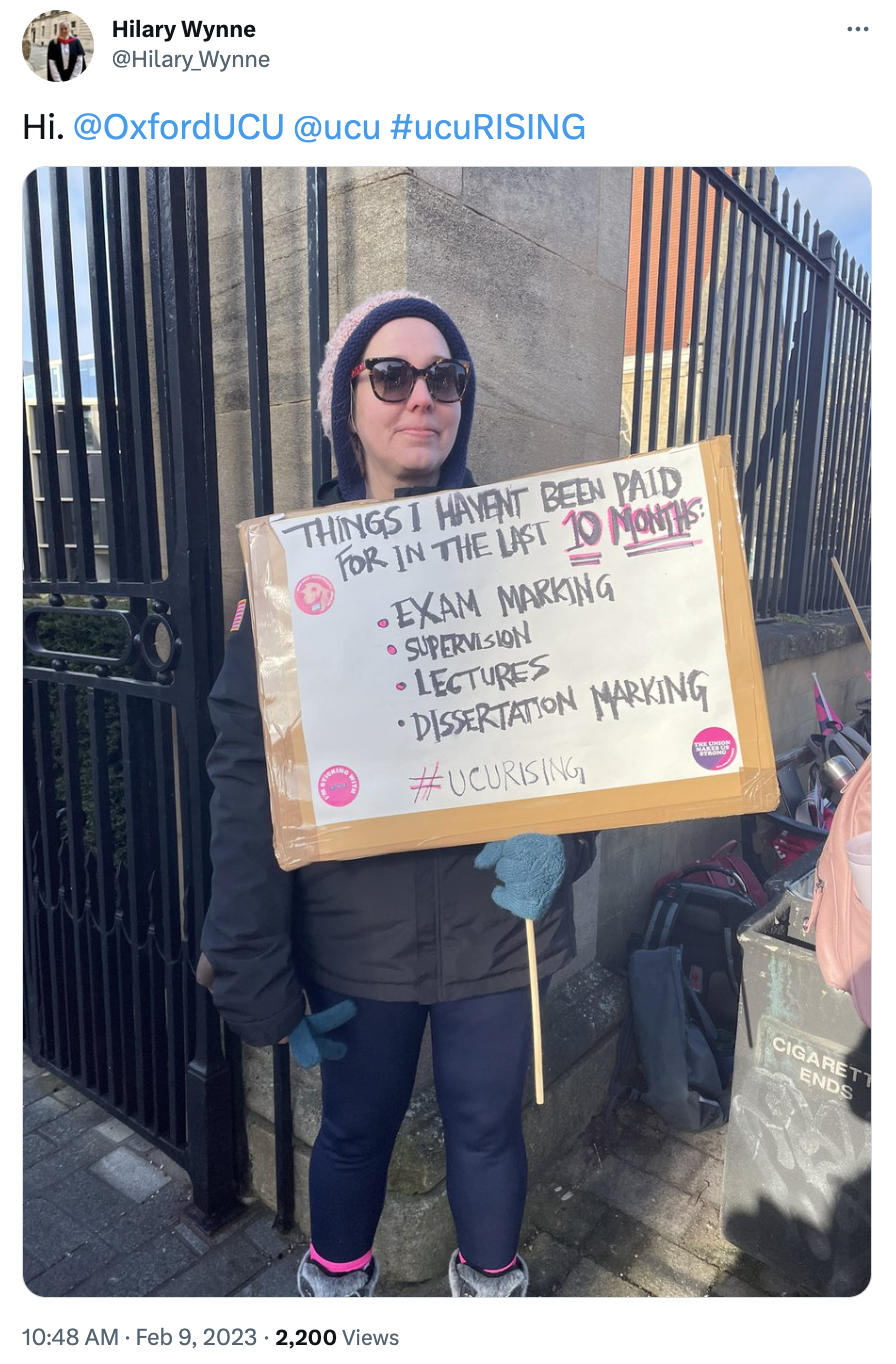 Hilary Wynne
@Hilary_Wynne
Hi. @OxfordUCU @ucu #ucuRISING
THINGS I HAVENT BEEN PAID
FOR IN THE LAST 10 MONTHS:
• EXAM MARKING
• SUPERVISION
• LECTURES
• DISSERTATION MARKING
#UCURISING
I'M STICKING WITH
THE UNION
MAKES US
STRONG
CIGARETT
ENDS
10:48 AM · Feb 9, 2023 · 2,200 Views